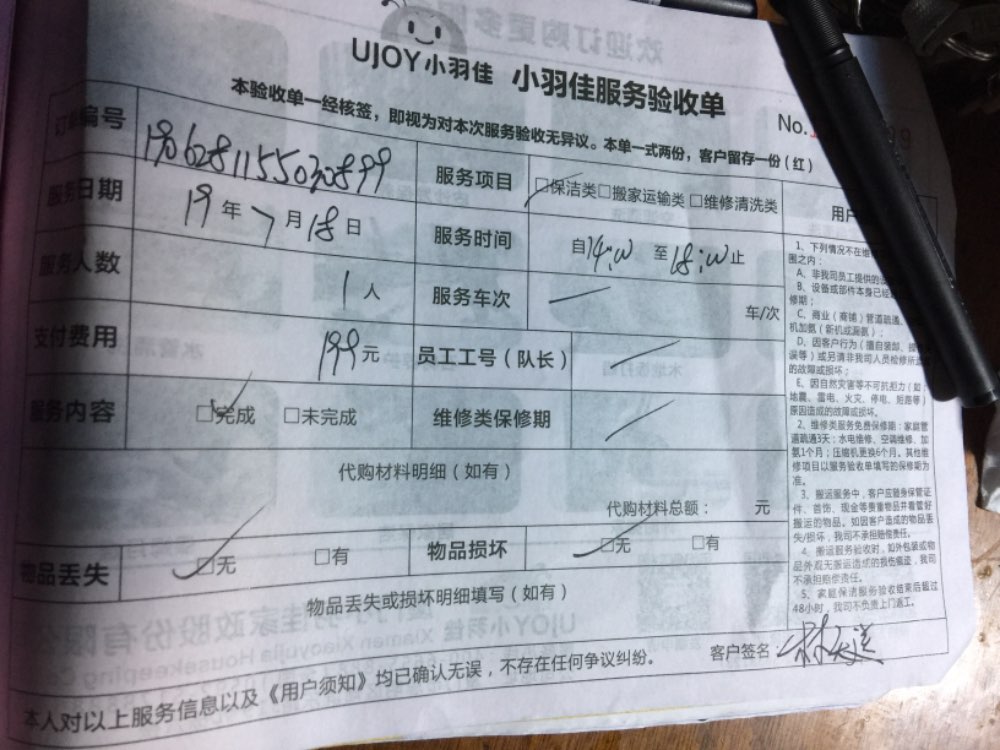 UJOY小羽佳 小羽佳服务验收单
本验收单一经核签，即视为对本次服务验收无异议。本单一式两份，客户留存一份（红）
No.
订单编号
服务项目 □保洁类□搬家运输类 □维修清洗类
服务日期 19年7月18日
服务时间 自14:00 至18:00止
服务人数 1人
服务车次 车/次
支付费用 199元
员工工号（队长）
服务内容 □完成 □未完成
维修类保修期
代购材料明细（如有）
代购材料总额： 元
物品丢失 □无 □有
物品损坏 □无 □有
物品丢失或损坏明细填写（如有）
本人对以上服务信息以及《用户须知》均已确认无误，不存在任何争议纠纷。
客户签名：
用户
1、下列情况不在维
围之内：
A、非我司员工提供的
B、设备或部件本身已经
修期；
C、商业（商铺）管道疏通、
机加氨（新机或漏氨）；
D、因客户行为（擅自装卸、
误等）或另请非我司人员检修所
的故障或损坏；
E、因自然灾害等不可抗拒力（如：
地震、雷电、火灾、停电、短路等）
原因造成的故障或损坏。
2、维修类服务免费保修期：家庭管
道疏通3天；水电维修、空调维修、加
氨1个月；压缩机更换6个月。其他维
修项目以服务验收单填写的保修期为
准。
3、搬运服务中，客户应随身保管证
件、首饰、现金等贵重物品并看管好
搬运的物品。如因客户造成的物品丢
失/损坏，我司不承担赔偿责任。
4、搬运服务验收时，如外包装或物
品外观无搬运造成的损伤痕迹，我司
不承担赔偿责任。
5、家庭保洁服务验收结束后超过
48小时，我司不负责上门返工。